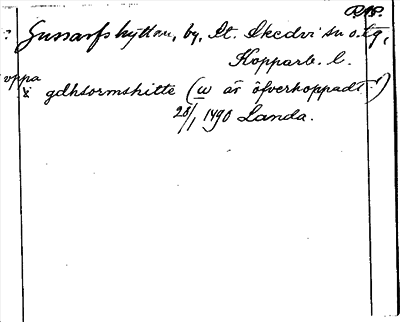 RAP.
Gussarfshyttan, by, St. Skedvi sn o. tg,
Kopparb. l.
uppa
i gdhsormshitte (w är öfverhoppadt!)
28/1 1490 Landa.